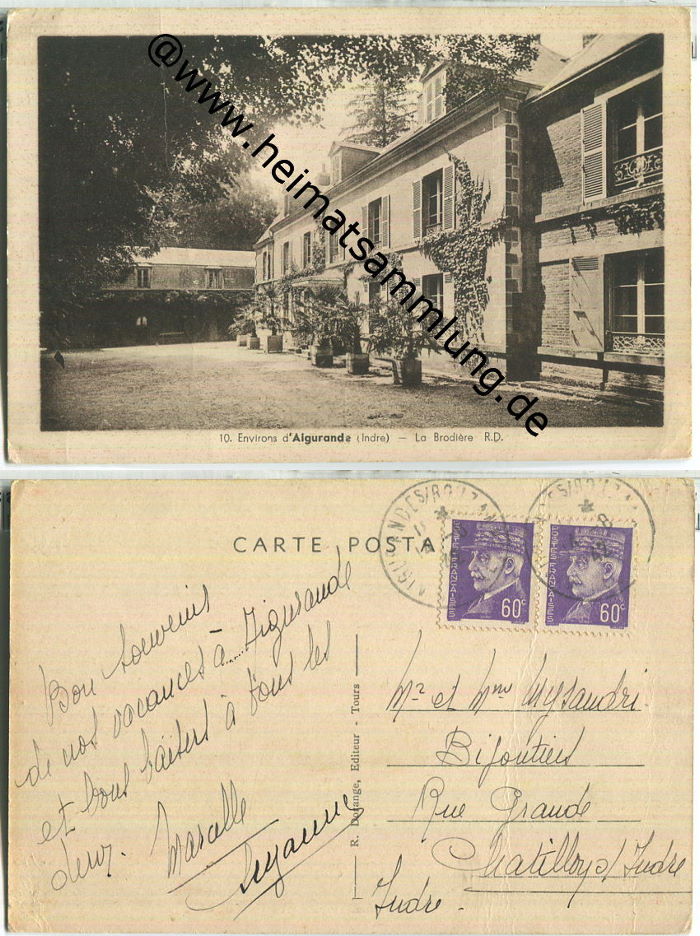 @www.heimatsammlung.de
10. Environs d'Aigurande (Indre) — La Brodière R.D.
CARTE POSTA
POSTES FRANÇAISES
60c
POSTES FRANÇAISES
60c
Bon souvenir
de nos vacances à Aigurande
et bons baisers à tous les
deux. Marcelle
Suzanne
R. Dorange, Editeur - Tours
Mr et Mme
Bijoutiers
Rue Grande
Chatillon s/ Indre
Indre.